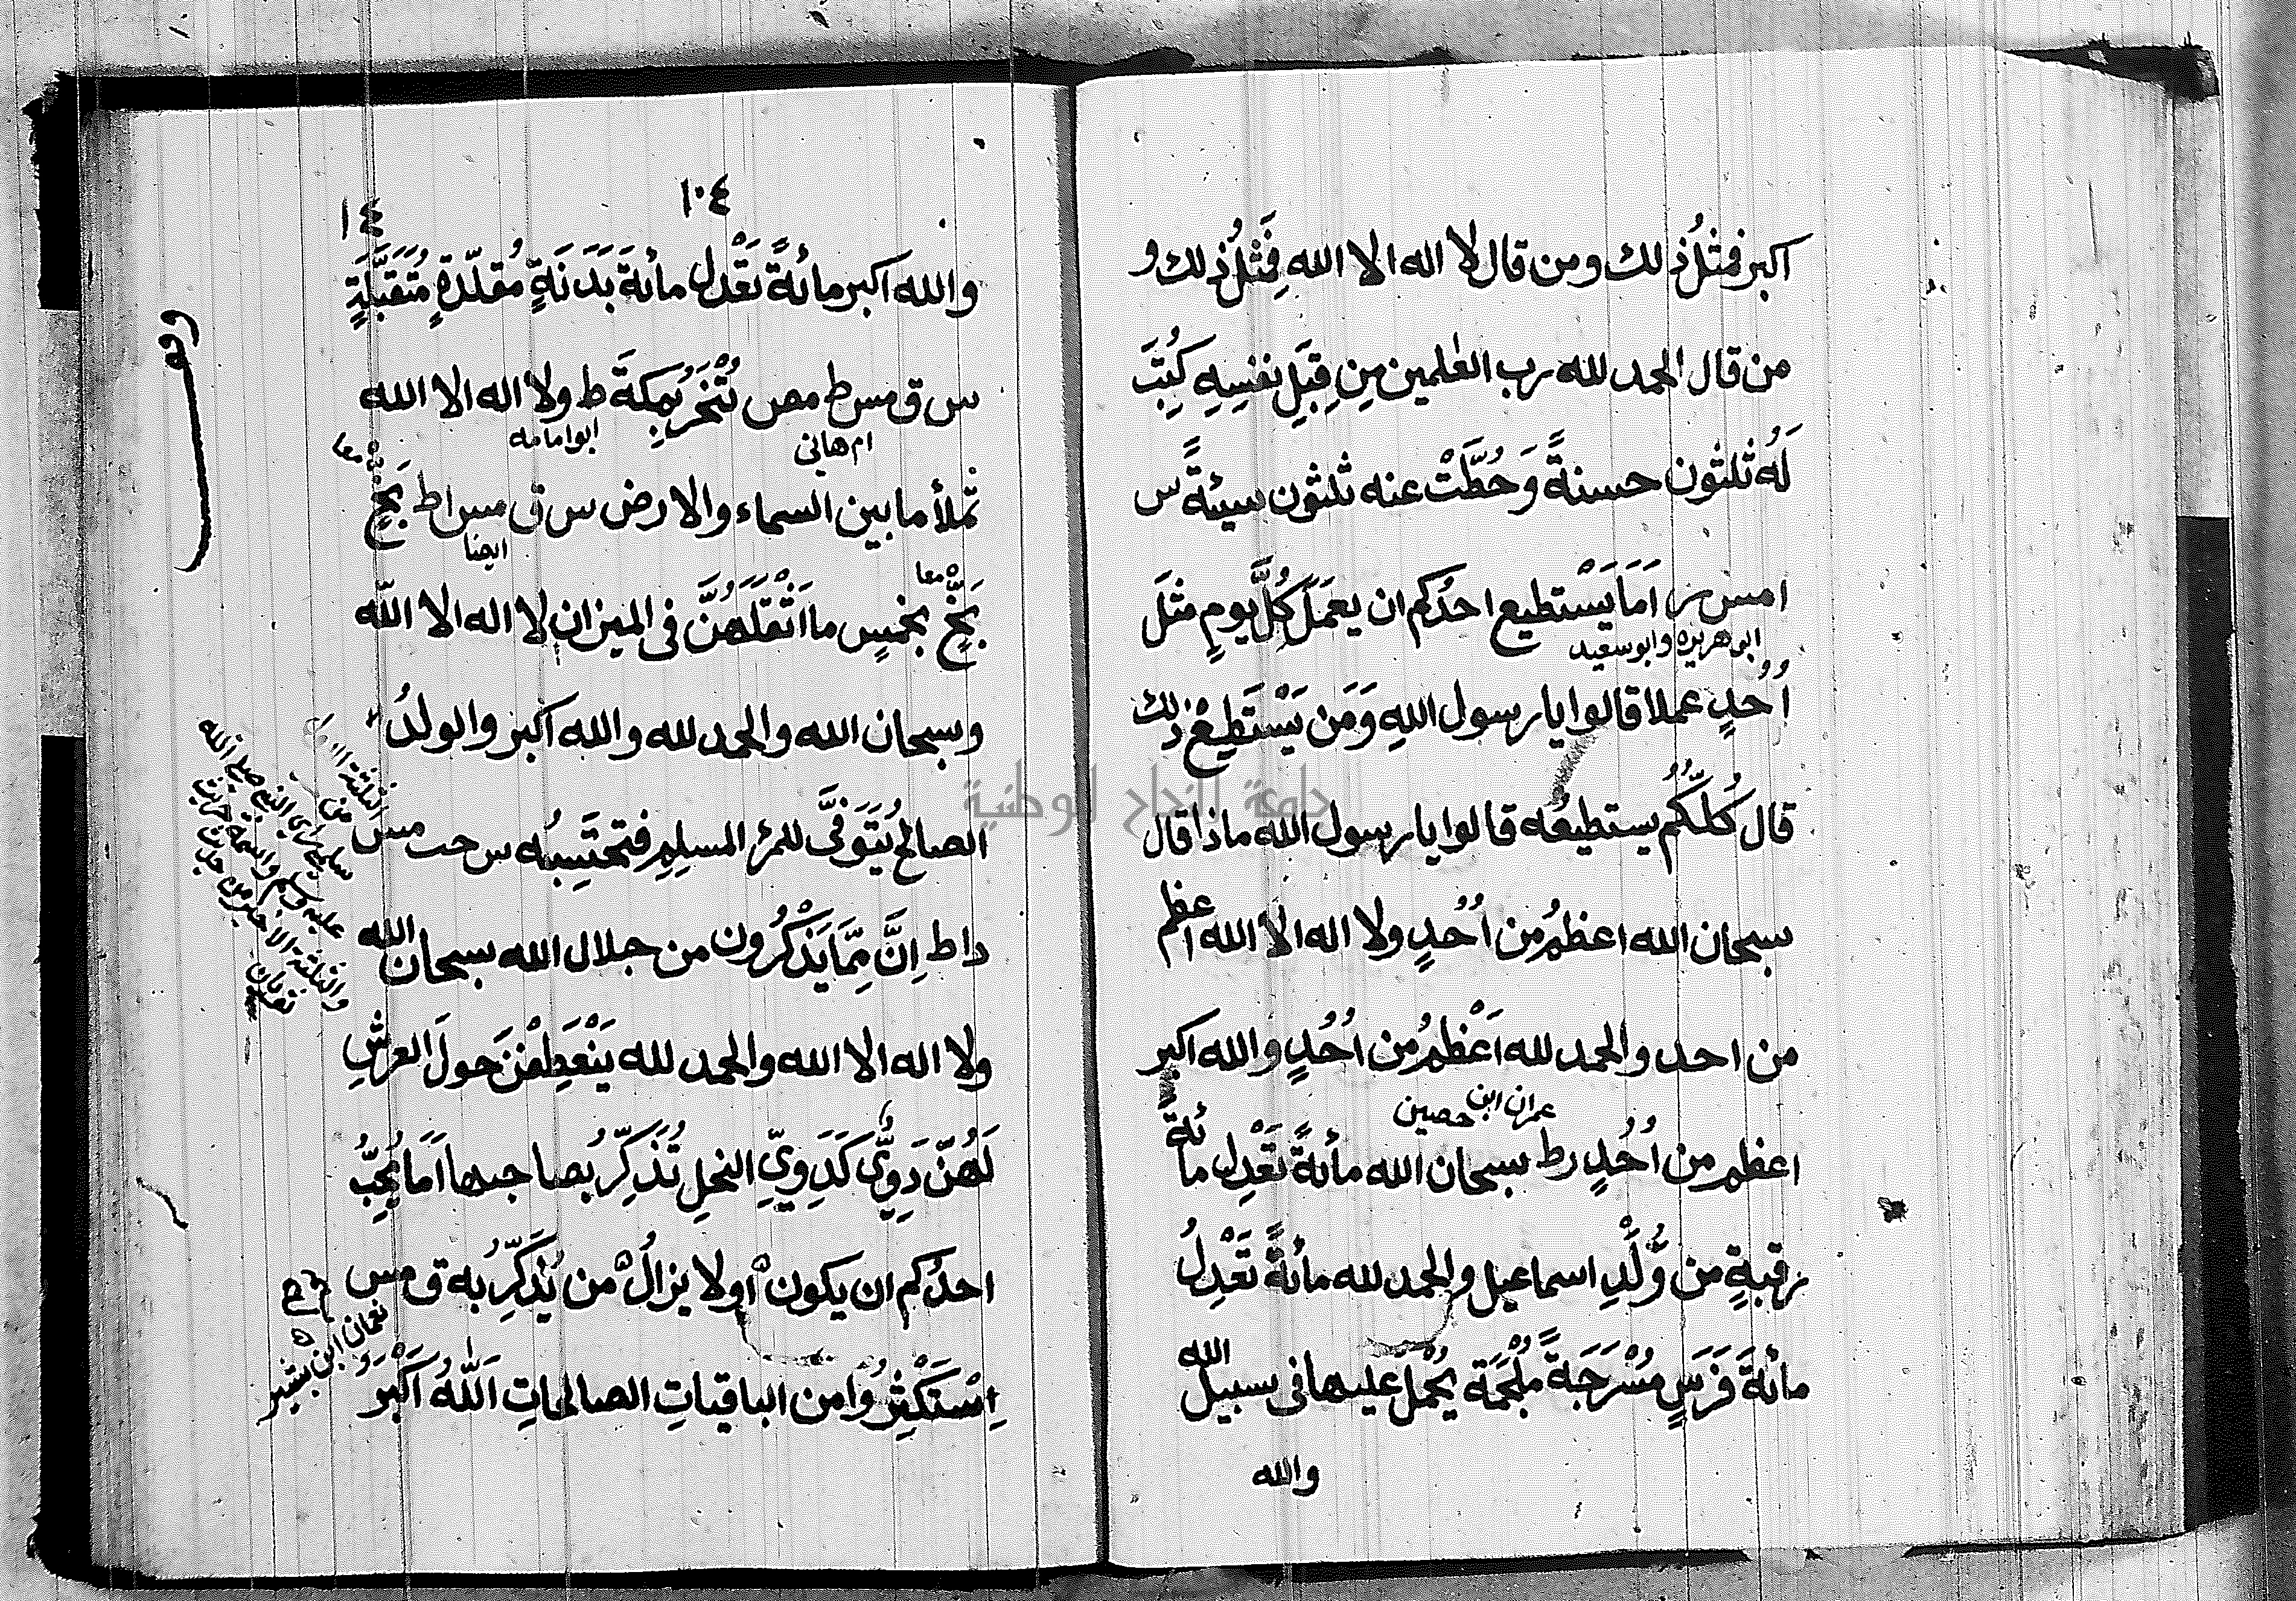 اكبر فمثلُ ذلك ومن قال لا اله الا الله فَمثلُ ذلك و
من قال الحمد لله رب العلمين مِن قِبَلِ نفسِهِ كُتِبَت
لَه ثلثون حسنةً وَحُطَّتْ عنه ثلثون سيئةً س
امس ر اَمَا يَسْتطيع احدُكم ان يعمَلَ كُلَّ يومٍ مثلَ
ابو هريره وابو سعيد
اُحُدٍ عملا قالوا يا رسول اللهِ وَمَن يَسْتَطِيعُ ذلك
قال كُلُّكُم يستطيعُه قالوا يا رسول الله ماذا قال
سبحان الله اعظمُ من اُحُدٍ ولا اله الا الله اعظم
من احد والحمد لله اَعْظمُ من اُحُدٍ والله اكبر
عمران ابن حصين
اعظم من اُحُدٍ رط سبحان الله مأئةً تَعْدِل مائة
رقبةٍ من وُلْدِ اسماعيل والحمد لله مأئةً تَعْدِلُ
مأئةَ فَرَسٍ مُسْرَجَةً مُلْجَمَة يُحْمَلُ عليها فى سبيل الله
والله
١٠٤
١٤
والله اكبر مأئةً تَعْدِل مأئةَ بَدَنَةٍ مُقلّدةٍ مُتَقَبَّلَةٍ
س ق مس ط مص تُنْحَرُ بِمكةَ ط ولا اله الا الله
ام هانى
ابو امامه
تملأ ما بين السماء والارض س ق مس اط بَخٍّ
معا
ايضا
بَخٍّ بخمسٍ ما اَثْقَلَهُنَّ فى الميزان لا اله الا اللّه
معا
وسبحان الله والحمد لله والله اكبر والولدُ
الصالحُ يُتَوَفَّى للمرْء المسلمِ فتحتَسِبُه س حب مس
داط اِنَّ مِمّا يَذْكُرُون من جلال الله سبحان الله
ولا اله الا الله والحمد لله يَنْعَطِفْنَ حَولَ العرشِ
لَهُنّ دَوِيٌّ كَدَوِيِّ النحلِ تُذَكِّرُ بصاحبها اَمَا يُحِبُّ
احدُكم ان يكون اَوْ لا يزالُ من يُذَكِّرُ به ق مس
نعمان ابن بشير
اِسْتَكْثِرُوا من الباقيات الصالحاتِ اَللّٰهُ اَكْبَرُ
وقف
جامعة النجاح الوطنية